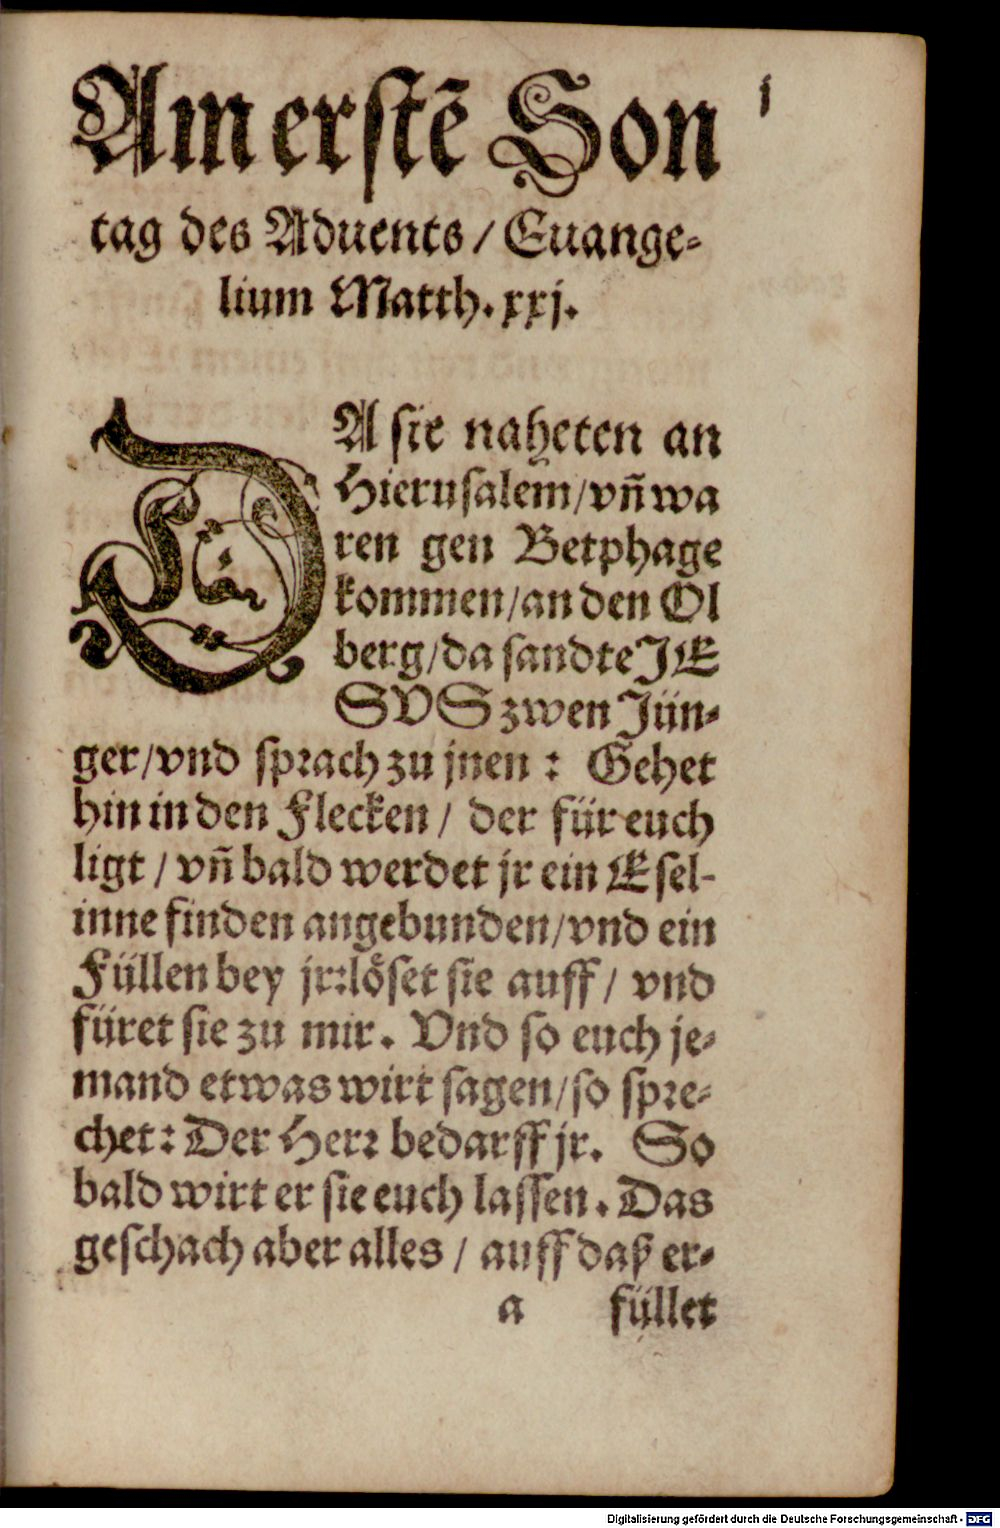 j
Am erstē Son
tag des Aduents / Euange-
lium Matth. xxj.
DA sie naheten an
Hierusalem/vñ wa
ren gen Betphage
kommen/an den Ol
berg/da sandte JE
SVS zwen Jün-
ger/vnd sprach zu jnen : Gehet
hin in den Flecken / der für euch
ligt / vñ bald werdet jr ein Esel-
inne finden angebunden/vnd ein
Füllen bey jr:löset sie auff / vnd
füret sie zu mir. Vnd so euch je-
mand etwas wirt sagen/so spre-
chet: Der Herr bedarff jr. So
bald wirt er sie euch lassen. Das
geschach aber alles / auff daß er-
a füllet
Digitalisierung gefördert durch die Deutsche Forschungsgemeinschaft - DFG